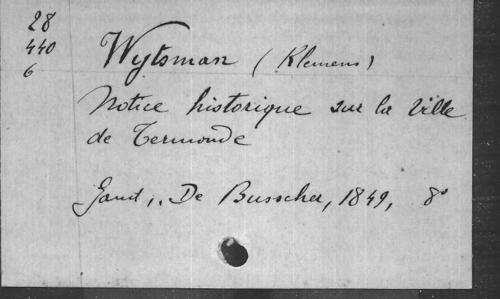 28
440
6
Wytsman (Klemens)
Notice historique sur la Ville
de Termonde
Gand, De Busscher, 1849, 8°